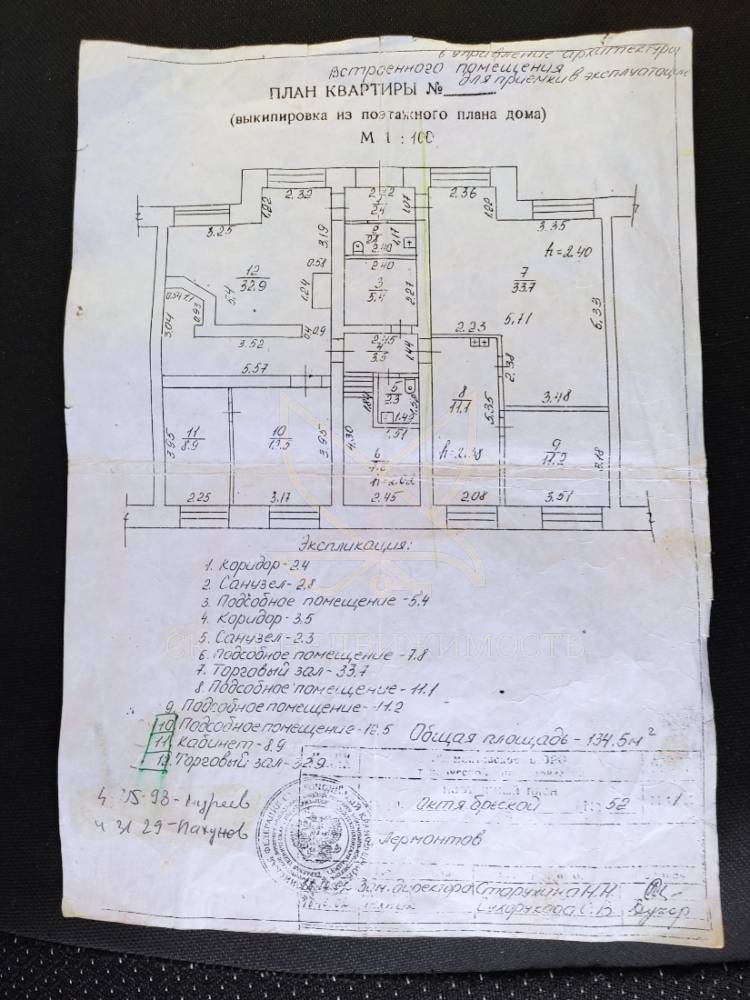 в управление архитектуры
встроенного помещения для приёмки в эксплуатацию
ПЛАН КВАРТИРЫ №
(выкипировка из поэтажного плана дома)
М 1 : 100
2.32 2.42 2.36
1.92 1 2.4 1.07 1.92
3.25 3.35
3.19 2 2.8 1.17 2.40 h=2.40
12 32.9 0.51 2.40 7 33.7
5.4 1.24 3 5.4 2.27 6.33
0.93 5.71
3.04 0.9 2.23
3.52 2.45 4 3.5 1.44 2.38
5.57 5 2.3 8 11.1 3.48
1.84 1.49 5.35
11 8.9 10 12.5 1.51 9 11.2
3.95 3.95 4.30 6 7.8 h=2.38 3.18
h=2.62
2.25 3.17 2.45 2.08 3.51
Экспликация:
1. Коридор-2.4
2. Санузел-2.8
3. Подсобное помещение-5.4
4. Коридор-3.5
5. Санузел-2.3
6. подсобное помещение-7.8
7. Торговый зал-33.7
8. Подсобное помещение-11.1
9. Подсобное помещение-11.2
10. Подсобное помещение-12.5
11. Кабинет-8.9
12. Торговый зал-32.9
Общая площадь-134.5м²
НЕДВИЖИМОСТЬ
Октябрьской 52 1
Лермонтов
Зам. директора Старухина Н.Н
Сухорукова С.Б